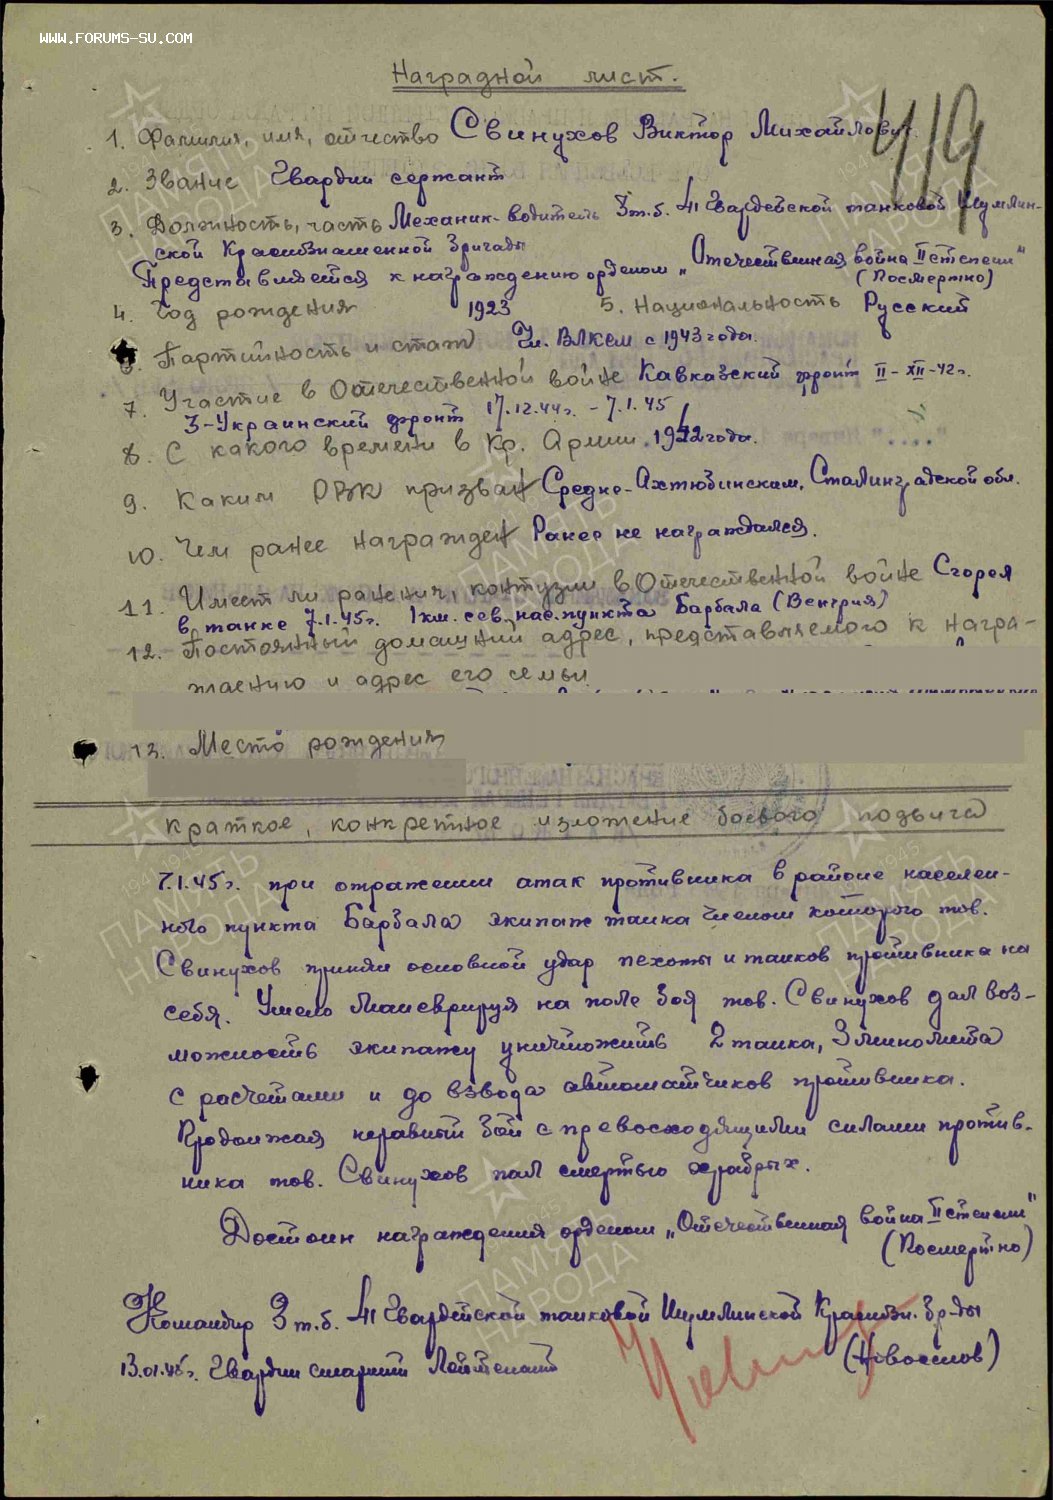 WWW.FORUMS-SU.COM
Наградной лист.
419
1. Фамилия, имя, отчество Свинухов Виктор Михайлович.
2. Звание Гвардии сержант
3. Должность, часть Механик-водитель 3 т.б. 41 Гвардейской танковой Шумлин-
ской Краснознаменной бригады
Представляется к награждению орденом „Отечественная война II степени"
(Посмертно)
4. Год рождения 1923 5. Национальность Русский
6. Партийность и стаж Чл. ВЛКСМ с 1943 года.
7. Участие в Отечественной войне Кавказский фронт II-XII-42г.
3-Украинский фронт 17.12.44г. - 7.1.45
8. С какого времени в Кр. Армии. 1942 года.
9. Каким РВК призван Средне-Ахтюбинским, Сталинградской обл.
10. Чем ранее награжден Ранее не награждался.
11. Имеет ли ранения, контузии в Отечественной войне Сгорел
в танке 7.1.45г. 1 км. сев. нас. пункта Барбала (Венгрия)
12. Постоянный домашний адрес, представляемого к награ-
ждению и адрес его семьи
13. Место рождения
Краткое, конкретное изложение боевого подвига
7.1.45г. при отражении атак противника в районе населен-
ного пункта Барбала экипаж танка членом которого тов.
Свинухов принял основной удар пехоты и танков противника на
себя. Умело маневрируя на поле боя тов. Свинухов дал воз-
можность экипажу уничтожить 2 танка, 3 миномета
с расчетами и до взвода автоматчиков противника.
Продолжая неравный бой с превосходящими силами против-
ника тов. Свинухов пал смертью храбрых.
Достоин награждения орденом „Отечественная война II степени"
(Посмертно)
Командир 3 т.б. 41 Гвардейской танковой Шумлинской Краснозн. бр-ды
13.01.45г. Гвардии старший Лейтенант (Новоселов)
ПАМЯТЬ НАРОДА
1941-1945